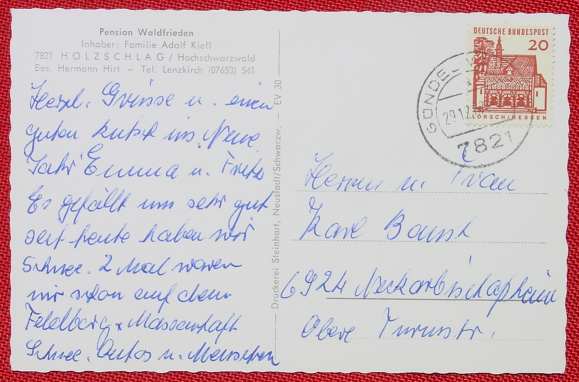 Pension Waldfrieden
Inhaber: Familie Adolf Kiefl
7821 HOLZSCHLAG / Hochschwarzwald
Bes. Hermann Hirt - Tel. Lenzkirch (07653) 541
Herzl. Grüsse u. einen
guten Rutsch ins Neue
Jahr Emma u. Fritz
Es gefällt uns sehr gut
seit heute haben wir
Schnee. 2 Mal waren
wir schon auf dem
Feldberg Massenhaft
Schnee. Autos u. Menschen
Druckerei Steinhart, Neustadt/Schwarzw. - EV 30
DEUTSCHE BUNDESPOST
20
LORSCH/HESSEN
7821
Herrn u. Frau
Karl
6924 Neckarbischofsheim
Obere Turmstr.